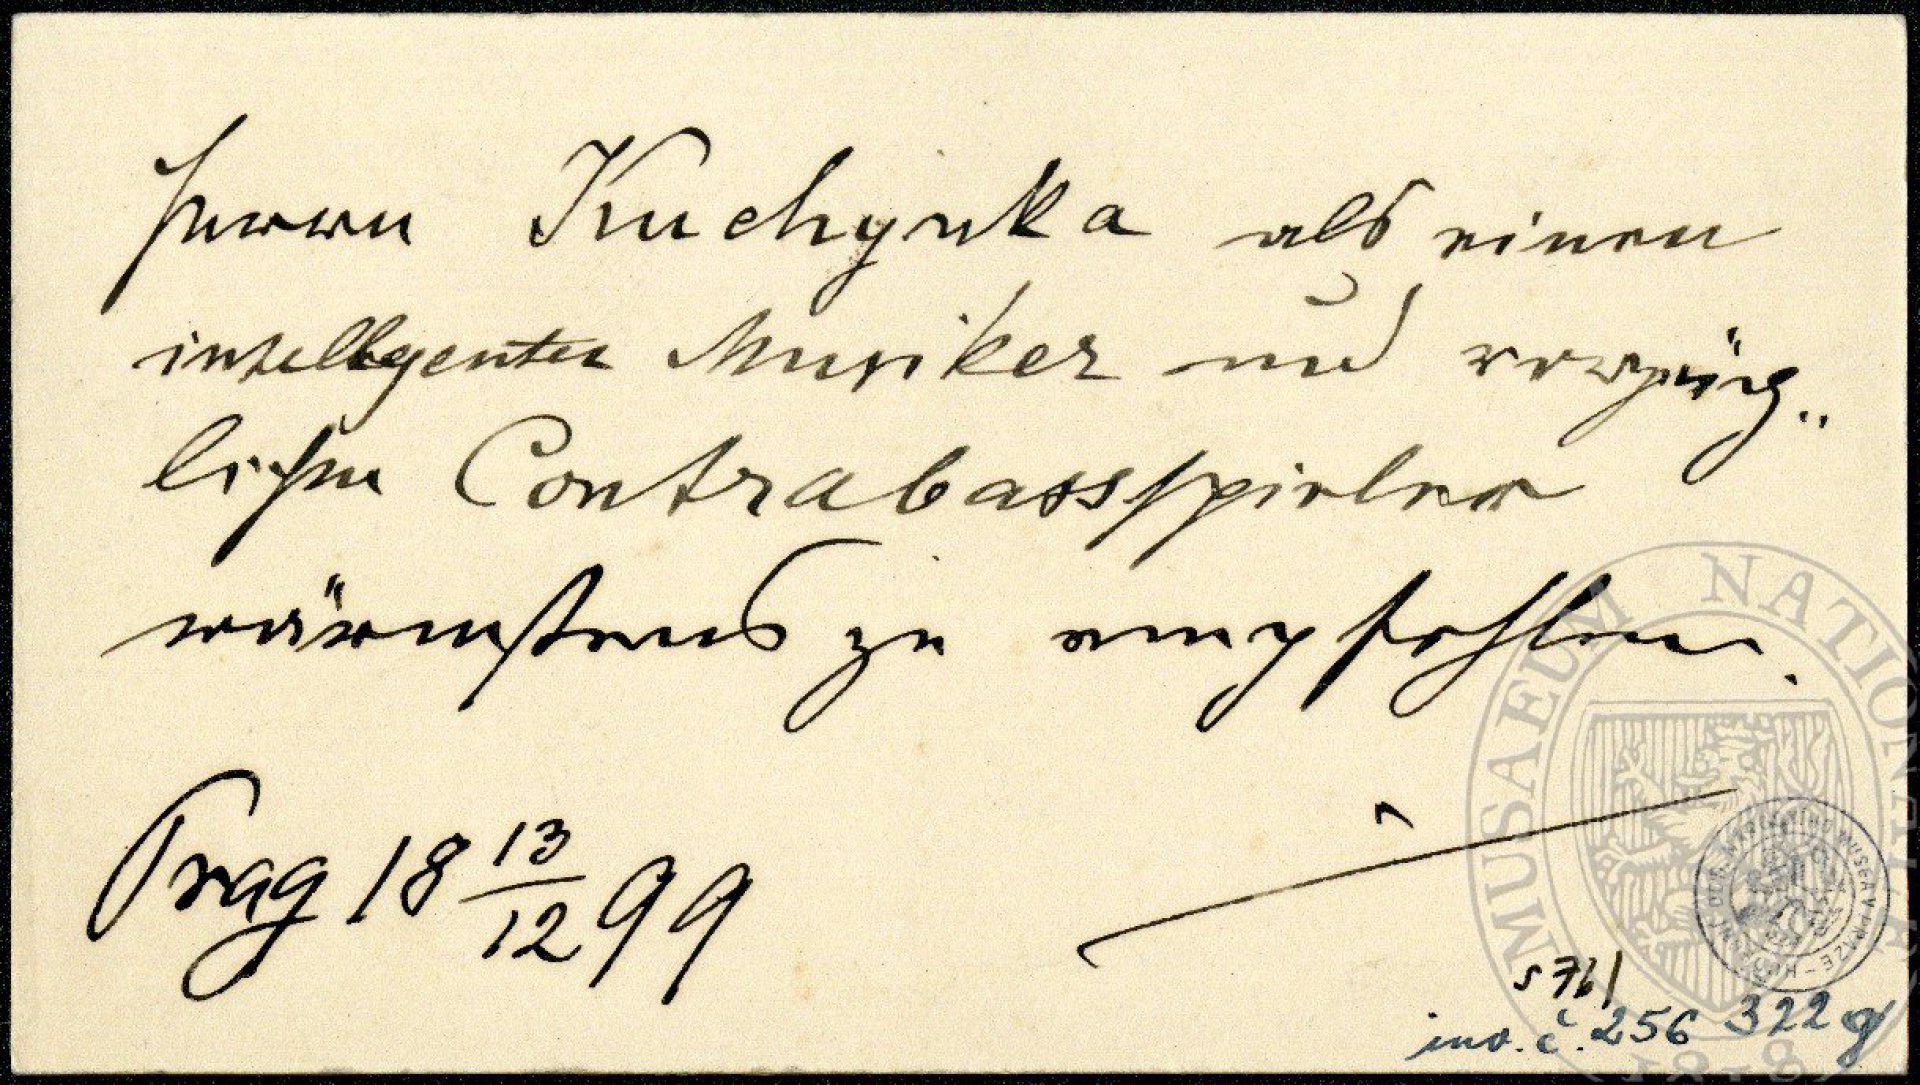 Herrn Kuchynka als einen
intelligenten Musiker und vorzüg„
lichen Contrabassspieler
wärmstens zu empfehlen.
Prag 18 13/12 99
MUSAEUM NATIONALE
inv. č. 256 322 g
1818